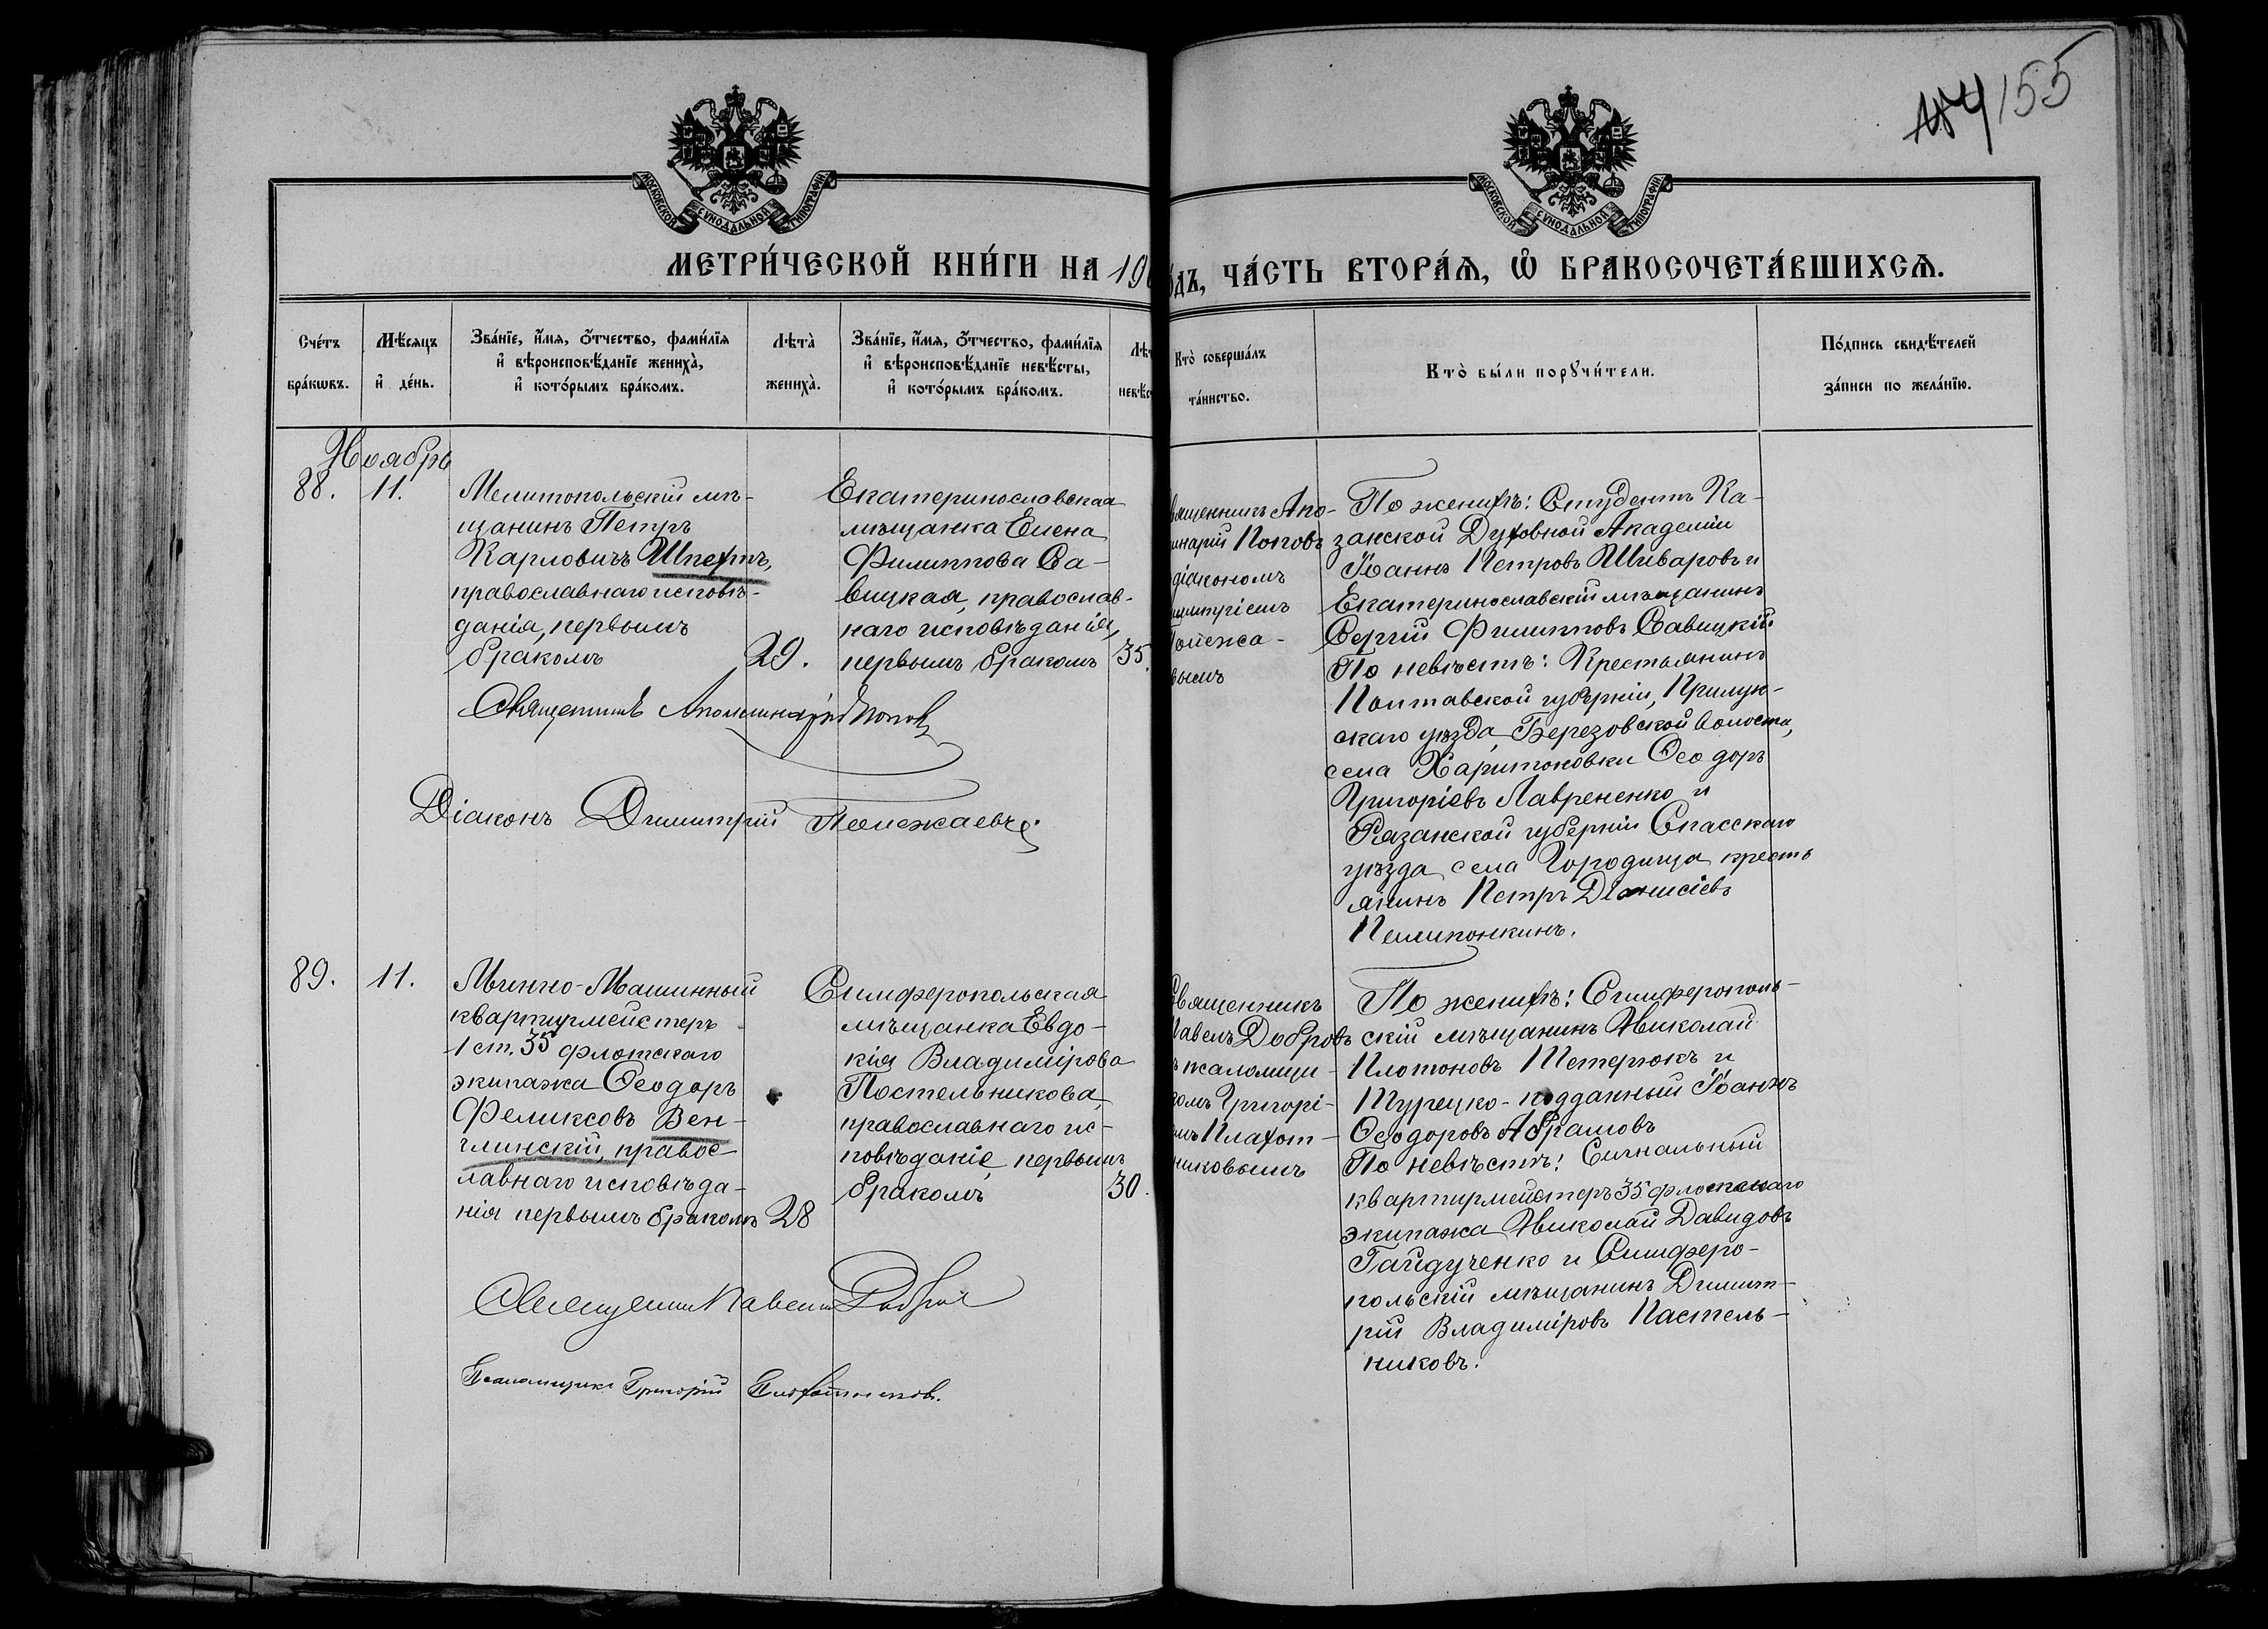 155
МОСКОВСКОЙ СУНОДАЛЬНОЙ ТИПОГРАФІИ.
МОСКОВСКОЙ СУНОДАЛЬНОЙ ТИПОГРАФІИ.
МЕТРИ́ЧЕСКОЙ КНИ́ГИ НА 19
ДЪ, ЧА́СТЬ ВТОРА́Я, Ѡ БРАКОСОЧЕТА́ВШИХСЯ.
Сче́тъ бра́кѡвъ.
Мѣ́сяцъ и҆ де́нь.
Зва́нїе, и҆́мя, ѻ҆́тчество, фами́лїя
и҆ вѣроисповѣ́данїе женихà,
и҆ кото́рымъ бра́комъ.
Лѣтà женихà.
Зва́нїе, и҆́мя, ѻ҆́тчество, фами́лїя
и҆ вѣроисповѣ́данїе невѣ́сты,
и҆ кото́рымъ бра́комъ.
Лѣт
невѣс
Ктò соверша́лъ
та́инство.
Ктò бы́ли порꙋчи́тели.
По́дпись свидѣ́телей
за́писи по жела́нїю.
Ноябрь
88.
11.
Мелитопольскій мѣ-
щанинъ Петръ
Карловичъ Шпехтъ,
православнаго исповѣ-
данія, первымъ
бракомъ
29.
Екатеринославская
мѣщанка Елена
Филиппова Са-
вицкая, православ-
наго исповѣданія,
первымъ бракомъ
35.
вященникъ Апо-
инарій Поповъ
діакономъ
имитріемъ
олежа-
вымъ
По женихѣ: Студентъ Ка-
занской Духовной Академіи
Іоаннъ Петровъ Шиваровъ и
Екатеринославскій мѣщанинъ
Сергій Филипповъ Савицкій
По невѣстѣ: Крестьянинъ
Полтавской губерніи, Прилук-
скаго уѣзда, Березовской волости,
села Харитоновки Ѳеодоръ
Григоріевъ Лаврененко и
Рязанской губерніи Спасскаго
уѣзда села Городища кресть
янинъ Петръ Діонисіевъ
Пеликонкинъ.
Священникъ Аполлинарій Попов
Діаконъ Димитрій Полежаевъ.
89.
11.
Минно-Машинный
квартирмейстеръ
1 ст. 35 флотскаго
экипажа Ѳеодоръ
Феликсовъ Вен-
глинскій, правос
лавнаго исповѣда-
нія первымъ бракомъ
28
Симферопольская
мѣщанка Евдо-
кія Владимірова
Постельникова,
православнаго ис-
повѣданіе, первымъ
бракомъ
30.
Священникъ
Павелъ Добровъ
ъ псаломщи-
комъ Григорі-
емъ Плахот-
никовымъ
По женихѣ: Симферополь-
скій мѣщанинъ Николай
Плотоновъ Тетерюкъ и
Турецко-подданный Іоаннъ
Ѳеодоровъ Абрамовъ
По невѣстѣ: Сигнальный
квартирмейстеръ 35 флотскаго
экипажа Николай Давидовъ
Гайдученко и Симферо-
польскій мѣщанинъ Димит-
рій Владиміровъ Пастель-
никовъ.
Священник Павелъ Добров
Псаломщикъ Григорій Плахотников.